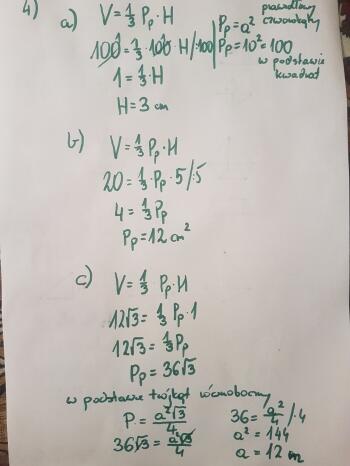 4)
a) V = 1/3 Pp · H
100 = 1/3 · 100 · H /:100
1 = 1/3 · H
H = 3 cm
Pp = a² prawidłowy czworokątny
Pp = 10² = 100
w podstawie kwadrat
b) V = 1/3 Pp · H
20 = 1/3 · Pp · 5 /:5
4 = 1/3 Pp
Pp = 12 cm²
c) V = 1/3 Pp · H
12√3 = 1/3 Pp · 1
12√3 = 1/3 Pp
Pp = 36√3
w podstawie trójkąt równoboczny
P = a²√3/4
36√3 = a²√3/4
36 = a²/4 /·4
a² = 144
a = 12 m